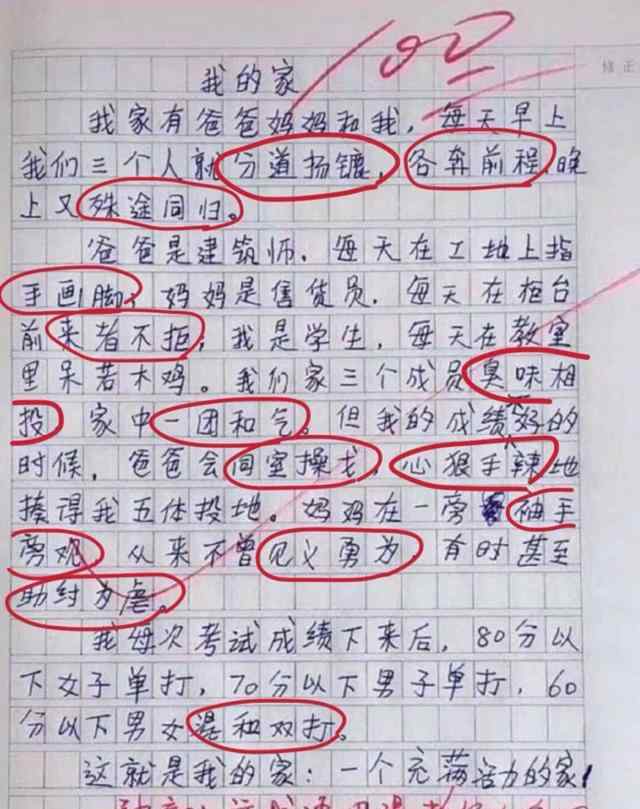 100
修正
我的家
我家有爸爸妈妈和我，每天早上
我们三个人就分道扬镳，各奔前程，晚
上又殊途同归。
爸爸是建筑师，每天在工地上指
手画脚，妈妈是售货员，每天在柜台
前来者不拒，我是学生，每天在教室
里呆若木鸡。我们家三个成员臭味相
投，家中一团和气。但我的成绩不好的
时候，爸爸会同室操戈，心狠手辣地
揍得我五体投地。妈妈在一旁袖手
旁观，从来不曾见义勇为，有时甚至
助纣为虐。
我每次考试成绩下来后，80分以
下女子单打，70分以下男子单打，60
分以下男女混和双打。
这就是我的家：一个充满活力的家！